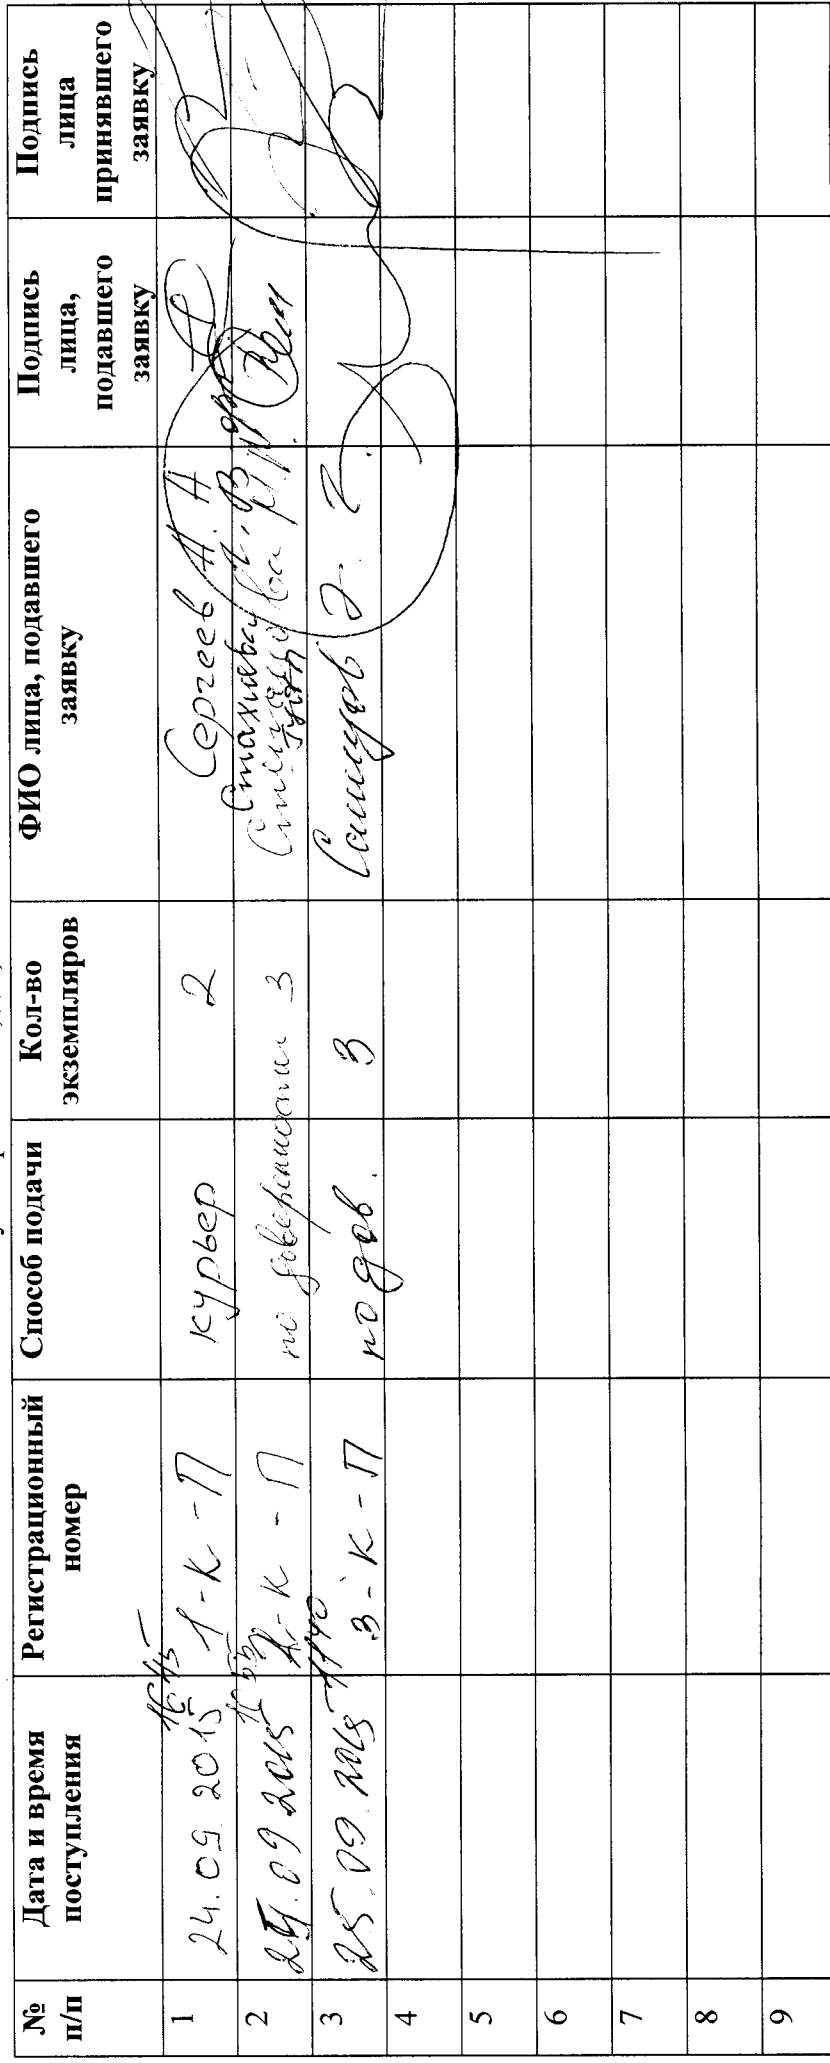 № п/п
Дата и время поступления
Регистрационный номер
Способ подачи
Кол-во экземпляров
ФИО лица, подавшего заявку
Подпись лица, подавшего заявку
Подпись лица принявшего заявку
1 24.09.2015 16 45 1-К-П курьер 2 Сергеев А. А
2 24.09 2015 16 55 2-К-П по доверенности 3
3 25.09.2015 11 40 3-К-П по дов. 3
4
5
6
7
8
9